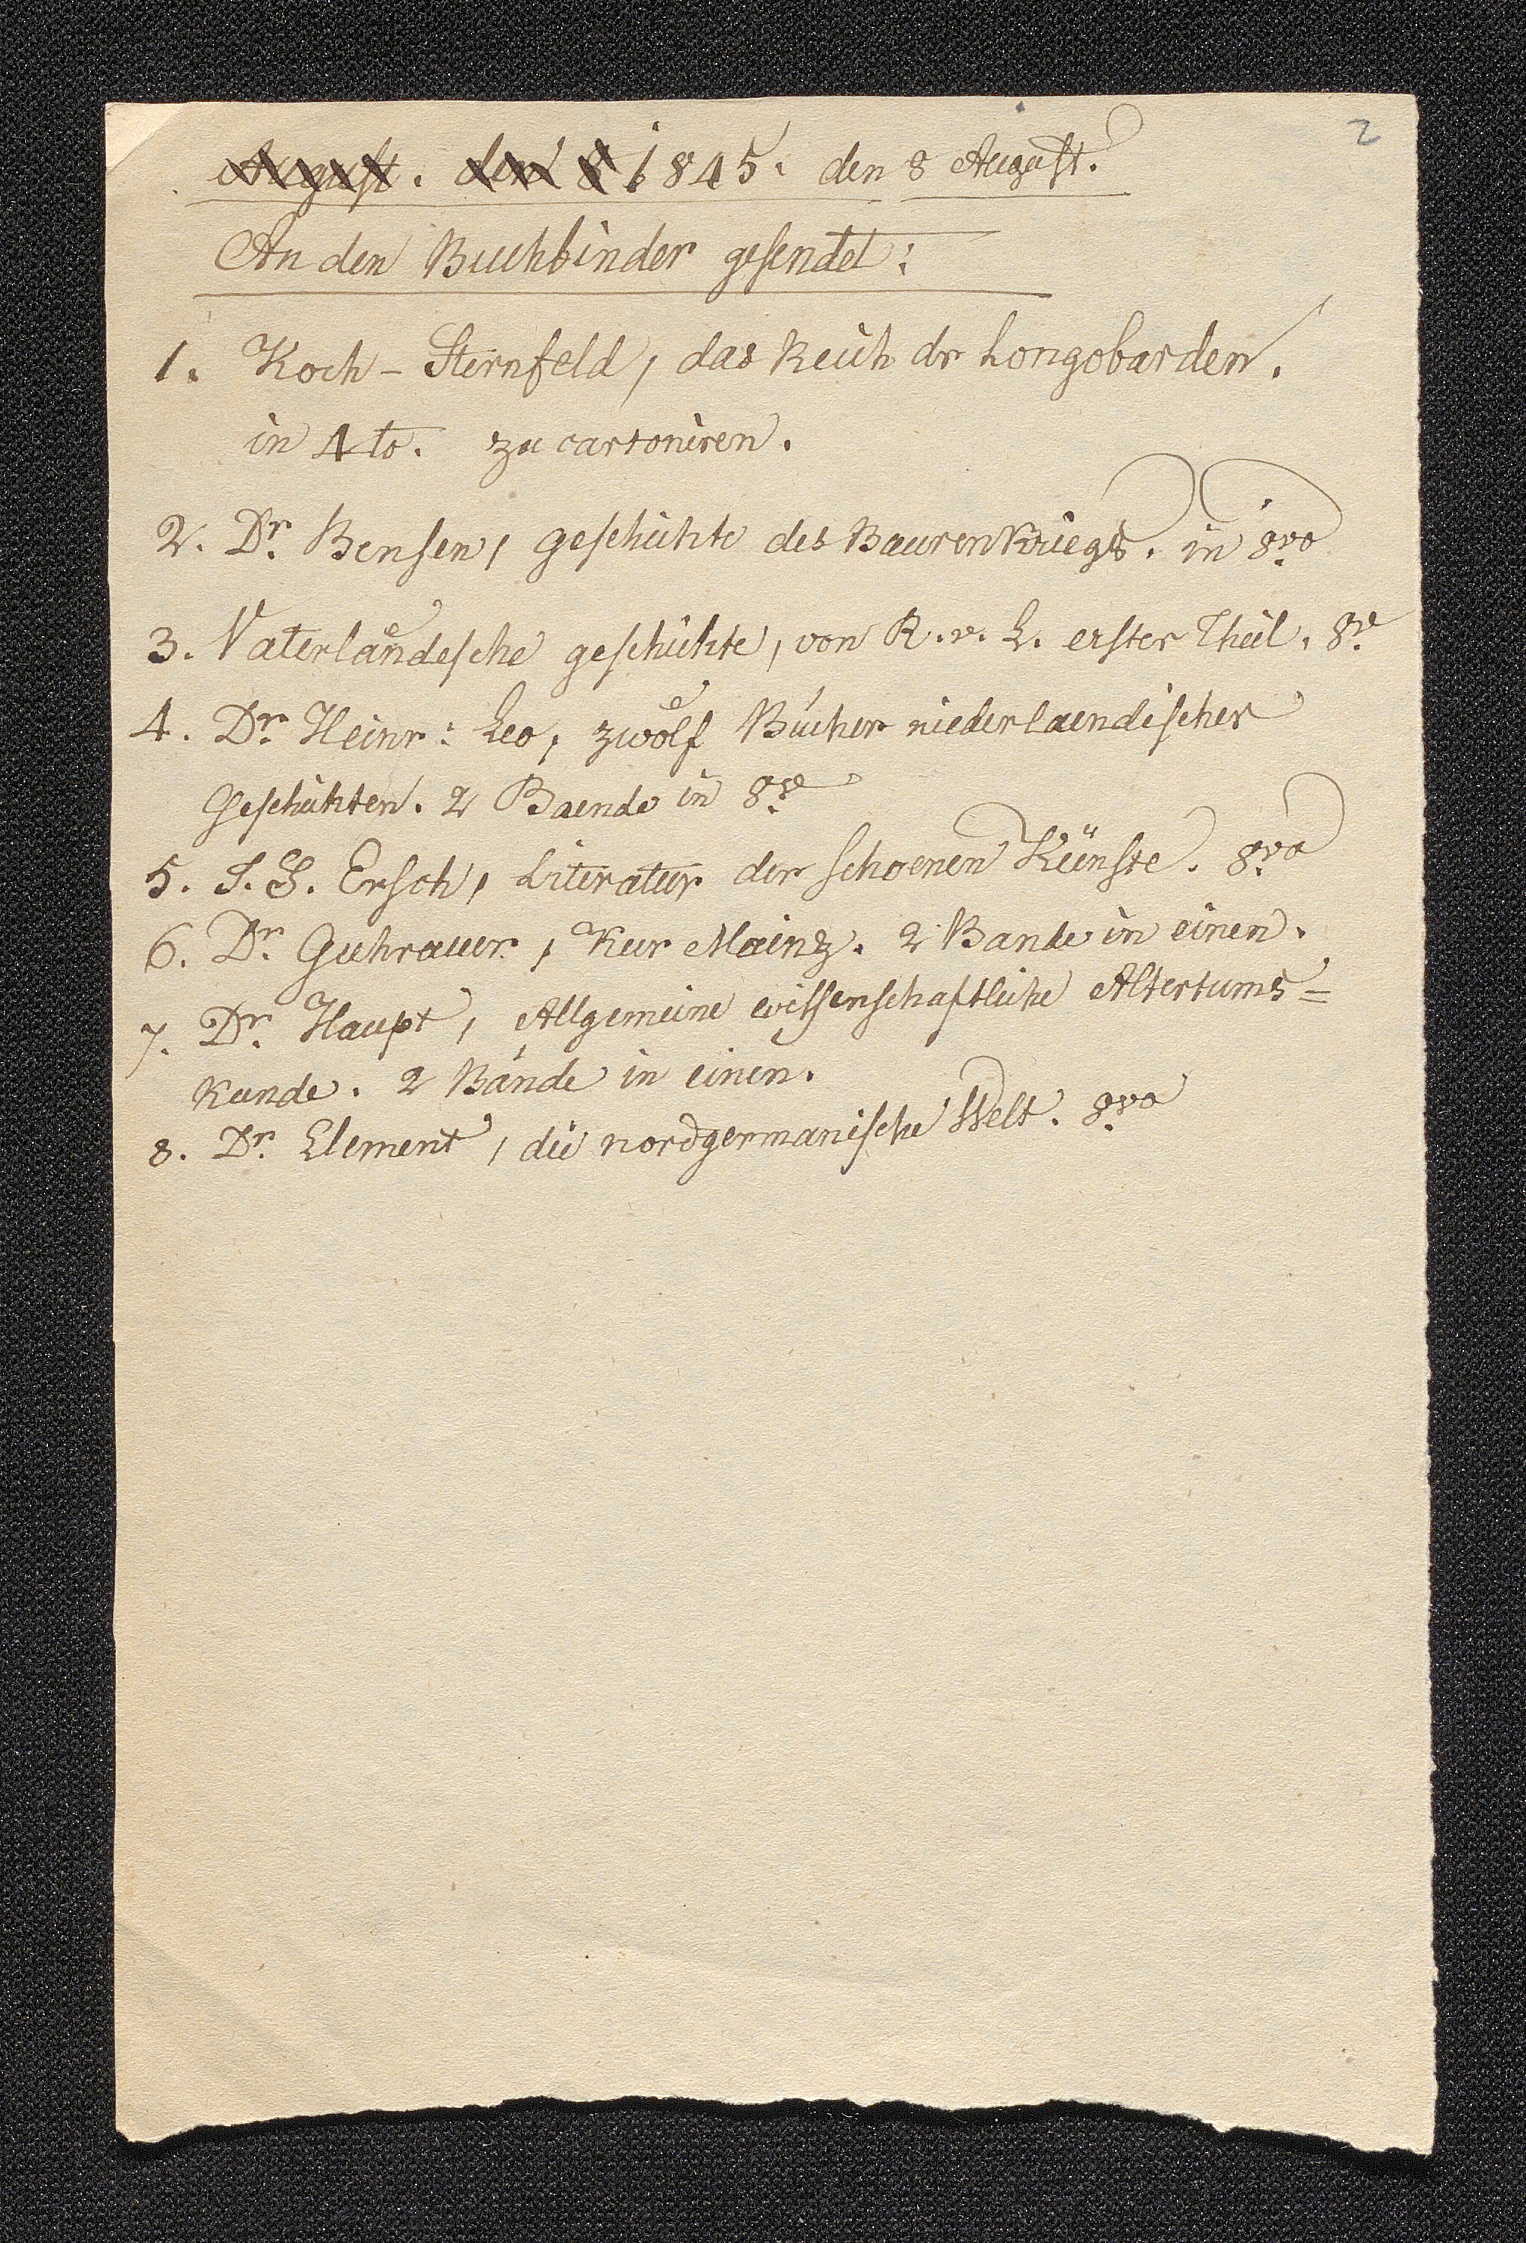 2
August. den 8 1845. den 8 August.
An den Buchbinder gesendet:
1. Koch-Sternfeld, das Reich der Longobarden.
in 4to. zu cartoniren.
2. Dr. Bensen, Geschichte des Baurenkriegs. in 8vo
3. Vaterländesche Geschichte, von R. v. L. erster Theil. 8o
4. Dr. Heinr: Leo, zwölf Bücher niederlaendischer
Geschichten. 2 Baende in 8o
5. J. S. Ersch, Literatur der schoenen Künste. 8vo
6. Dr. Guhrauer, Kur Mainz. 2 Bande in einen.
7. Dr. Haupt, Allgemeine wissenschaftliche Altertums=
kunde. 2 Bände in einen.
8. Dr. Clement, die nordgermanische Welt. 8vo